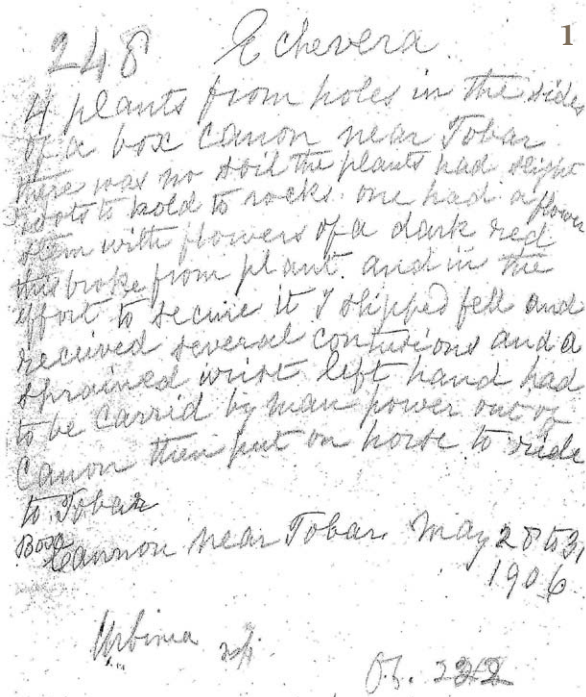 1
248 Echevera
4 plants from holes in the sides
of a box Canon near Tobar
there was no soil the plants had slight
roots to hold to rocks. one had a flower
stem with flowers of a dark red
this broke from plant. and in the
effort to secure it I slipped fell and
received several contusions and a
sprained wrist left hand had
to be carrid by man power out of
Canon then put on horse to ride
to Tobar
Box Cannon near Tobar. May 28 to 31
1906
Urbinia sp.